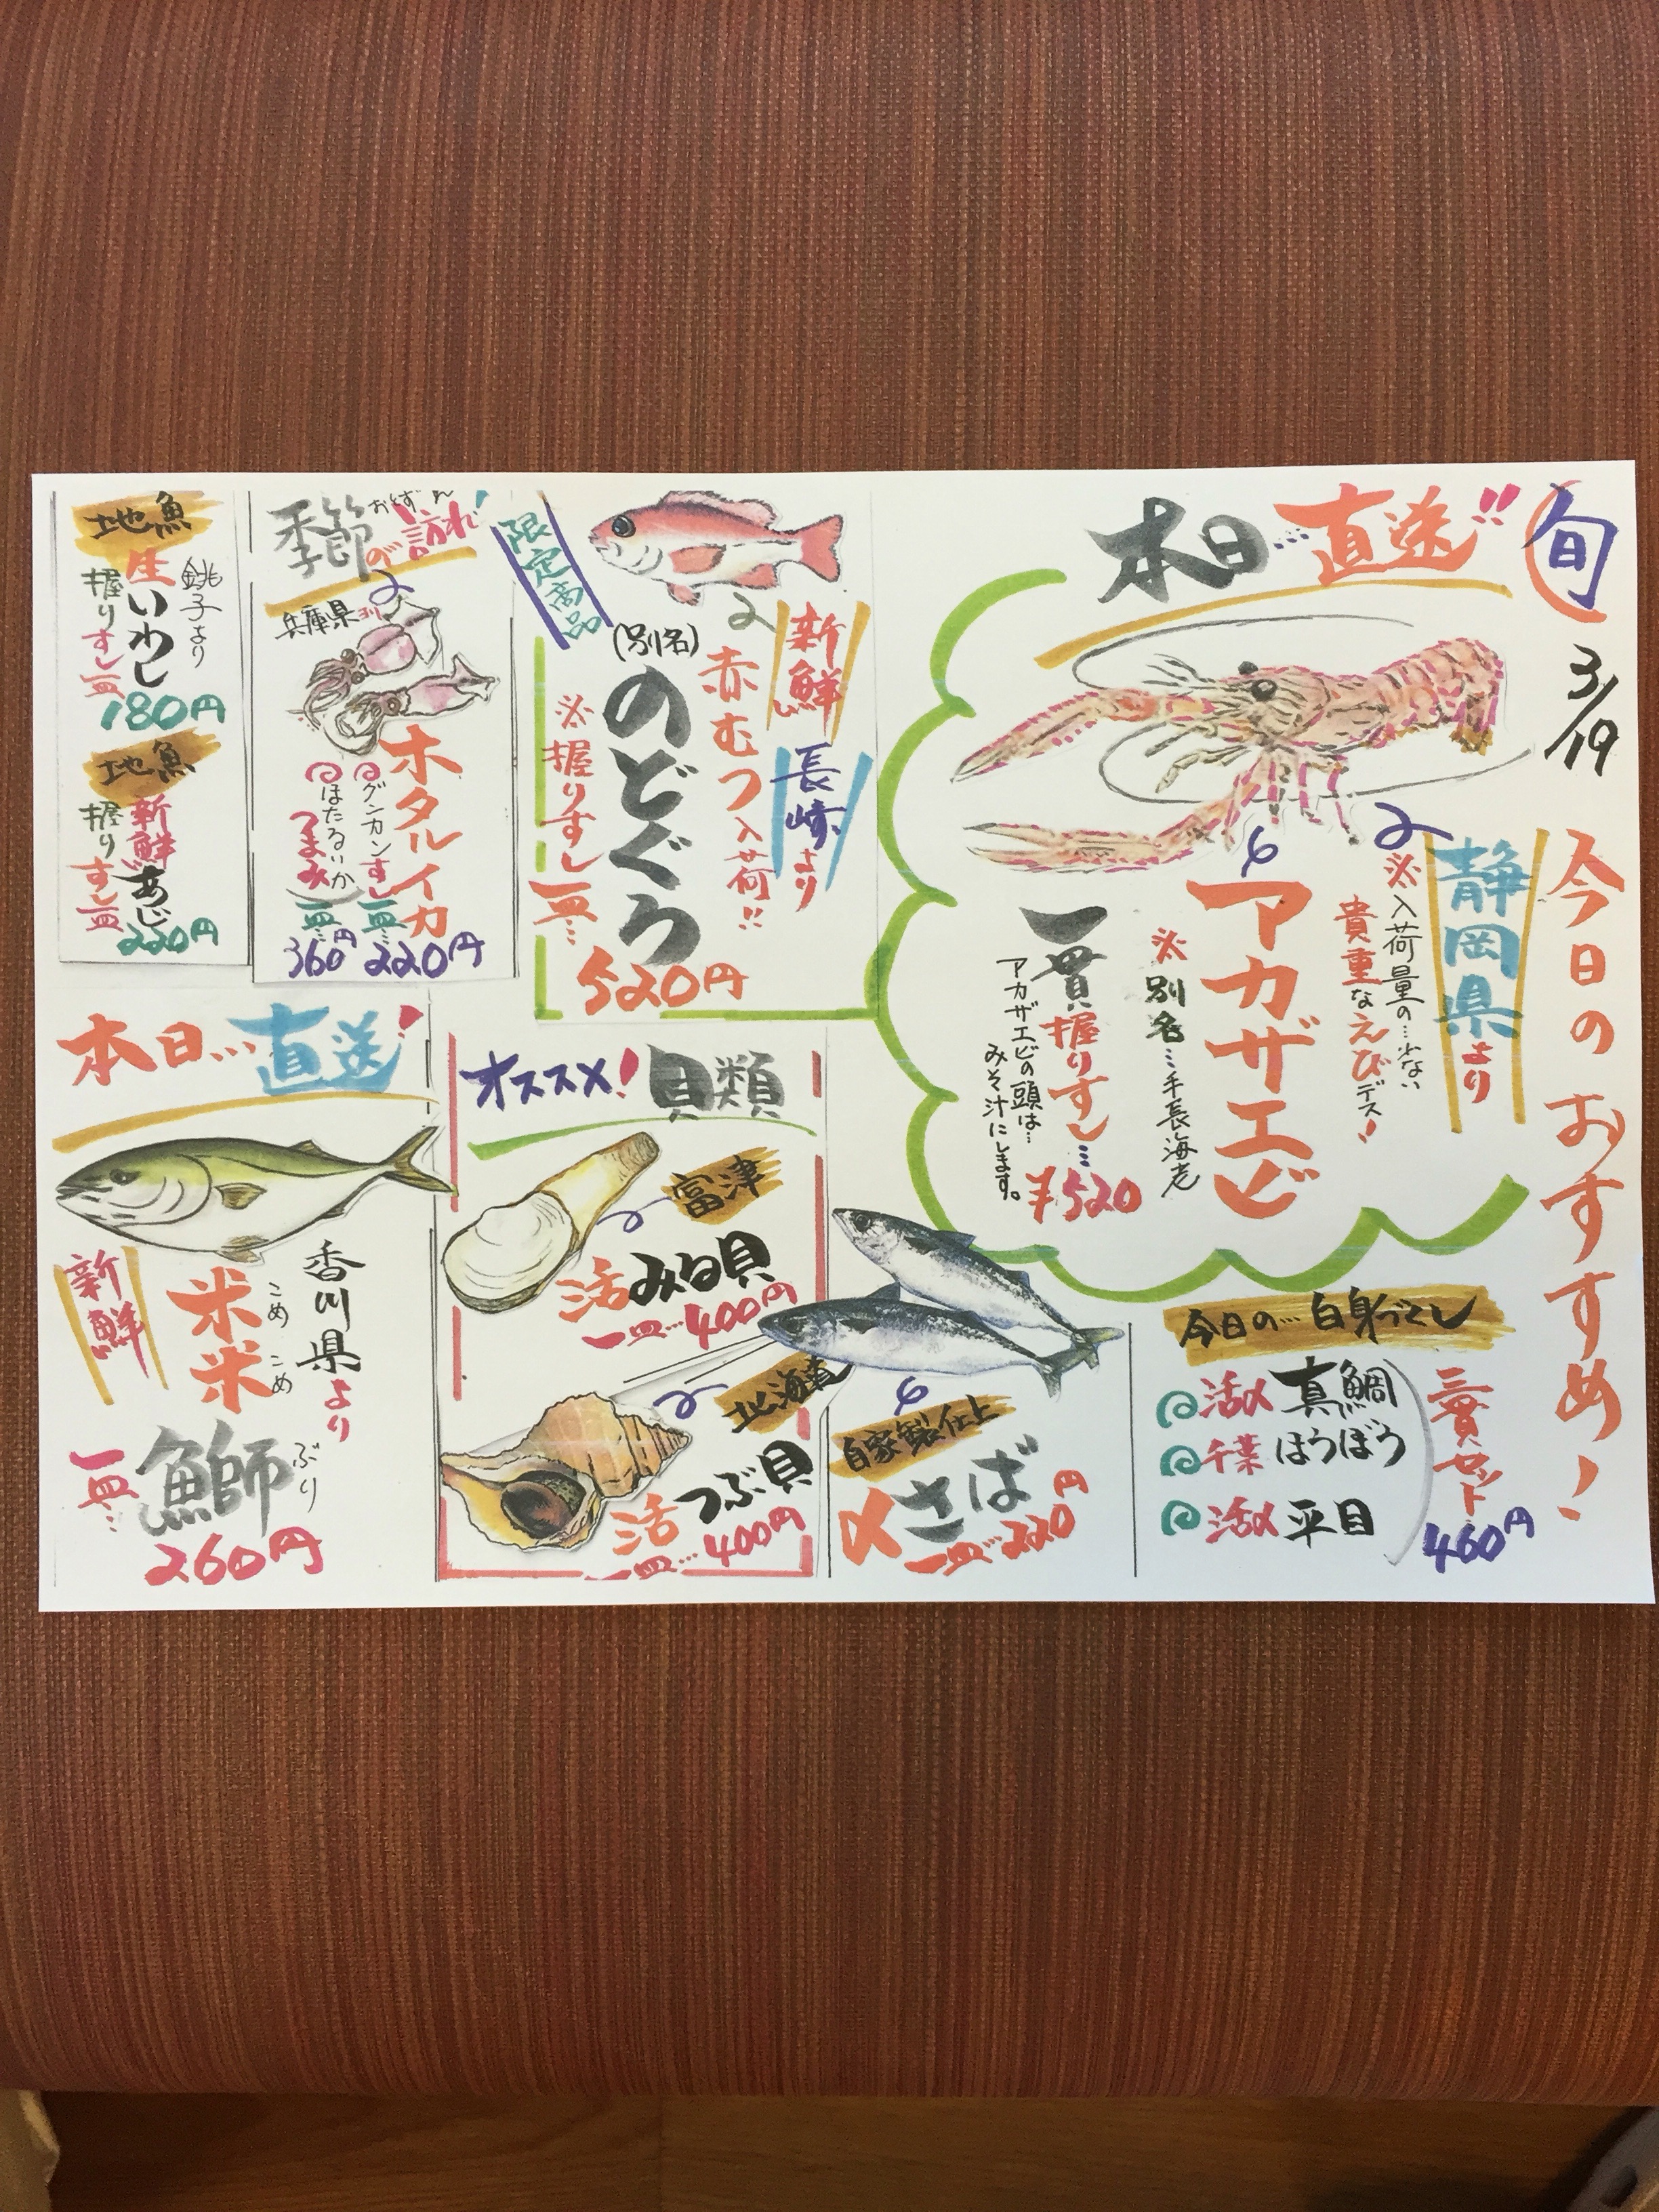 旬
3/19
今日のおすすめ!
本日…直送!!
静岡県より
※入荷量の…少ない
貴重なえびデス!
アカザエビ
※別名…手長海老
一貫握りすし…
¥520
アカザエビの頭は…
みそ汁にします。
今日の…白身づくし
活〆真鯛
千葉ほうぼう
活〆平目
三貫セット
460円
限定商品
新鮮
長崎より
赤むつ入荷!!
(別名)
のどぐろ
※握りすし一皿…
520円
季節の訪れ
おとずれ
兵庫県ヨリ
ホタルイカ
グンカンすし一皿…220円
ほたるいかつまみ一皿…360円
地魚
銚子より
生いわし
握りすし一皿
180円
地魚
新鮮あじ
握りすし一皿
220円
自家製仕上
〆さば
一皿…220円
オススメ!貝類
富津
活みる貝
一皿…400円
北海道
活つぶ貝
一皿…400円
本日…直送!
香川県より
こめ こめ
米米
新鮮
ぶり
鰤
一皿…
260円